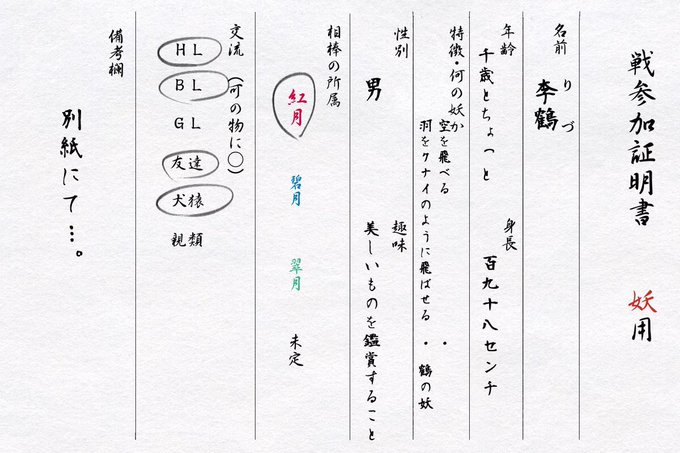 戦参加証明書 妖用
名前 李鶴 りづ
年齢 千歳とちょっと
身長 百九十八センチ
特徴・何の妖か
空を飛べる・
羽をクナイのように飛ばせる・鶴の妖
性別 男
趣味 美しいものを鑑賞すること
相棒の所属
紅月 碧月 翠月 未定
交流 (可の物に○)
HL
BL
GL
友達
犬猿
親類
備考欄
別紙にて…。